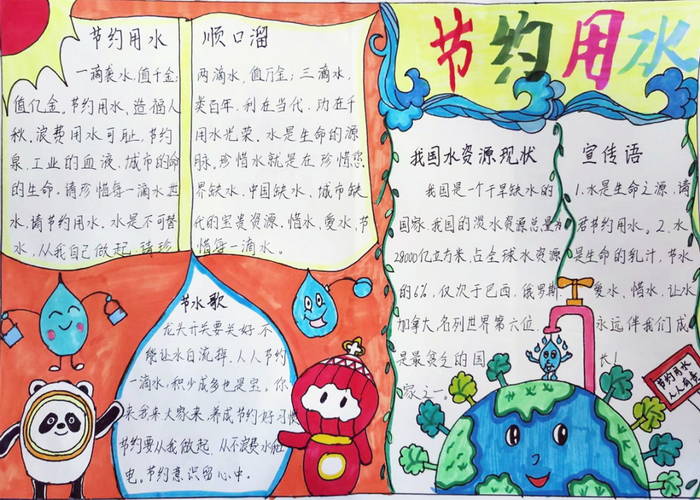 节约用水 顺口溜
一滴类水,值千金;两滴水,值万金;三滴水,
值亿金。节约用水、造福人类百年。利在当代,功在千
秋。浪费用水可耻,节约用水光荣。水是生命的源
泉、工业的血液、城市的命脉。珍惜水就是在珍惜您
的生命。请珍惜每一滴水世界缺水、中国缺水、城市缺
水,请节约用水。水是不可替代的宝贵资源。惜水、爱水、节
水,从我自己做起。请珍惜每一滴水。
节水歌
龙头开关要关好不
能让水白流掉。人人节约
一滴水,积少成多也是宝。你
来我来大家来,养成节约好习惯
节约要从我做起,从不浪费水和
电。节约意识留心中。
节约用水
我国水资源现状
我国是一个干旱缺水的
国家。我国的淡水资源总量为
28000亿立方米,占全球水资源
的6%,仅次于巴西、俄罗斯、
加拿大,名列世界第六位。
是最贫乏的国
家之一。
宣传语
1.水是生命之源,请
君节约用水。2.水
是生命的乳汁,节水
爱水、惜水、让水
永远伴我们成
长!
节约用水
人人有责